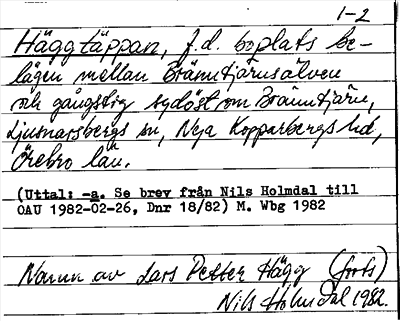 1-2
Häggtäppan, f.d. boplats be-
lägen mellan Bränntjärnsälven
och gångstig sydöst om Bränntjärn,
Ljusnarsbergs sn, Nya Kopparbergs hd,
Örebro län.
(Uttal: -a. Se brev från Nils Holmdal till
OAU 1982-02-26, Dnr 18/82) M. Wbg 1982
Namn av Lars Petter Hägg (forts)
Nils Holmdal 1982.